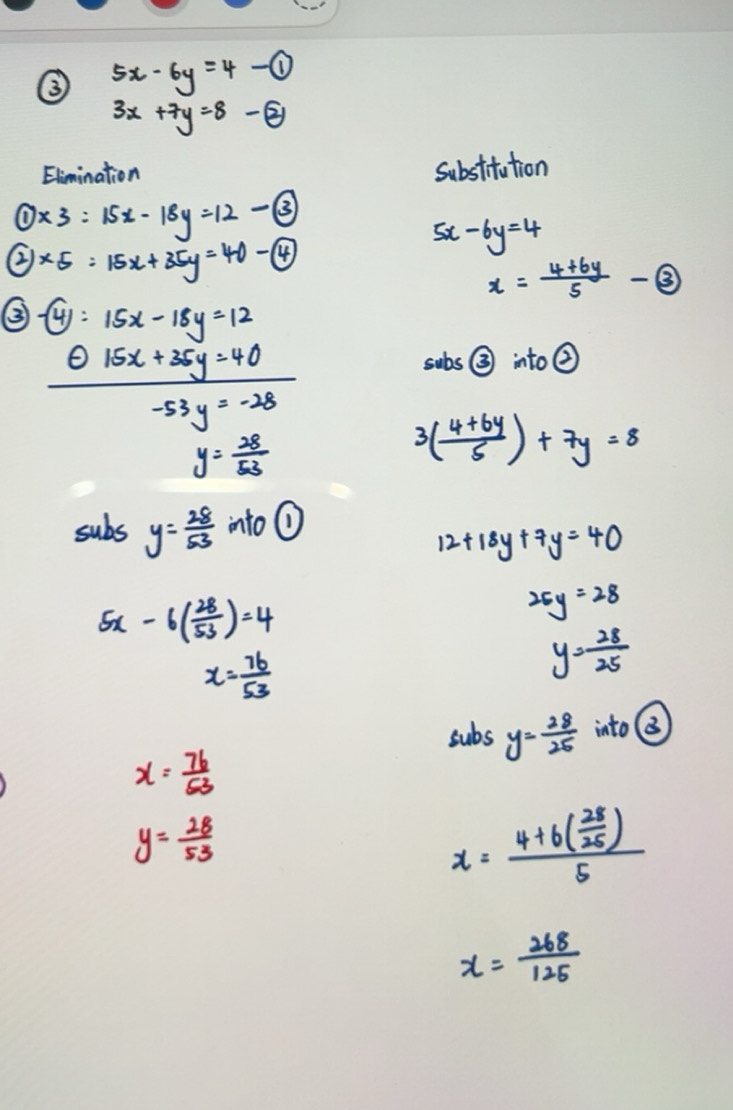 ③ 5x - 6y = 4 - ①
3x + 7y = 8 - ②
Elimination
① × 3 : 15x - 18y = 12 - ③
② × 5 : 15x + 35y = 40 - ④
③ - ④ : 15x - 18y = 12
⊖ 15x + 35y = 40
-53y = -28
y = 28/53
subs y = 28/53 into ①
5x - 6(28/53) = 4
x = 76/53
x = 76/53
y = 28/53
Substitution
5x - 6y = 4
x = (4+6y)/5 - ③
subs ③ into ②
3((4+6y)/5) + 7y = 8
12 + 18y + 7y = 40
25y = 28
y = 28/25
subs y = 28/25 into ③
x = (4 + 6(28/25))/5
x = 268/125